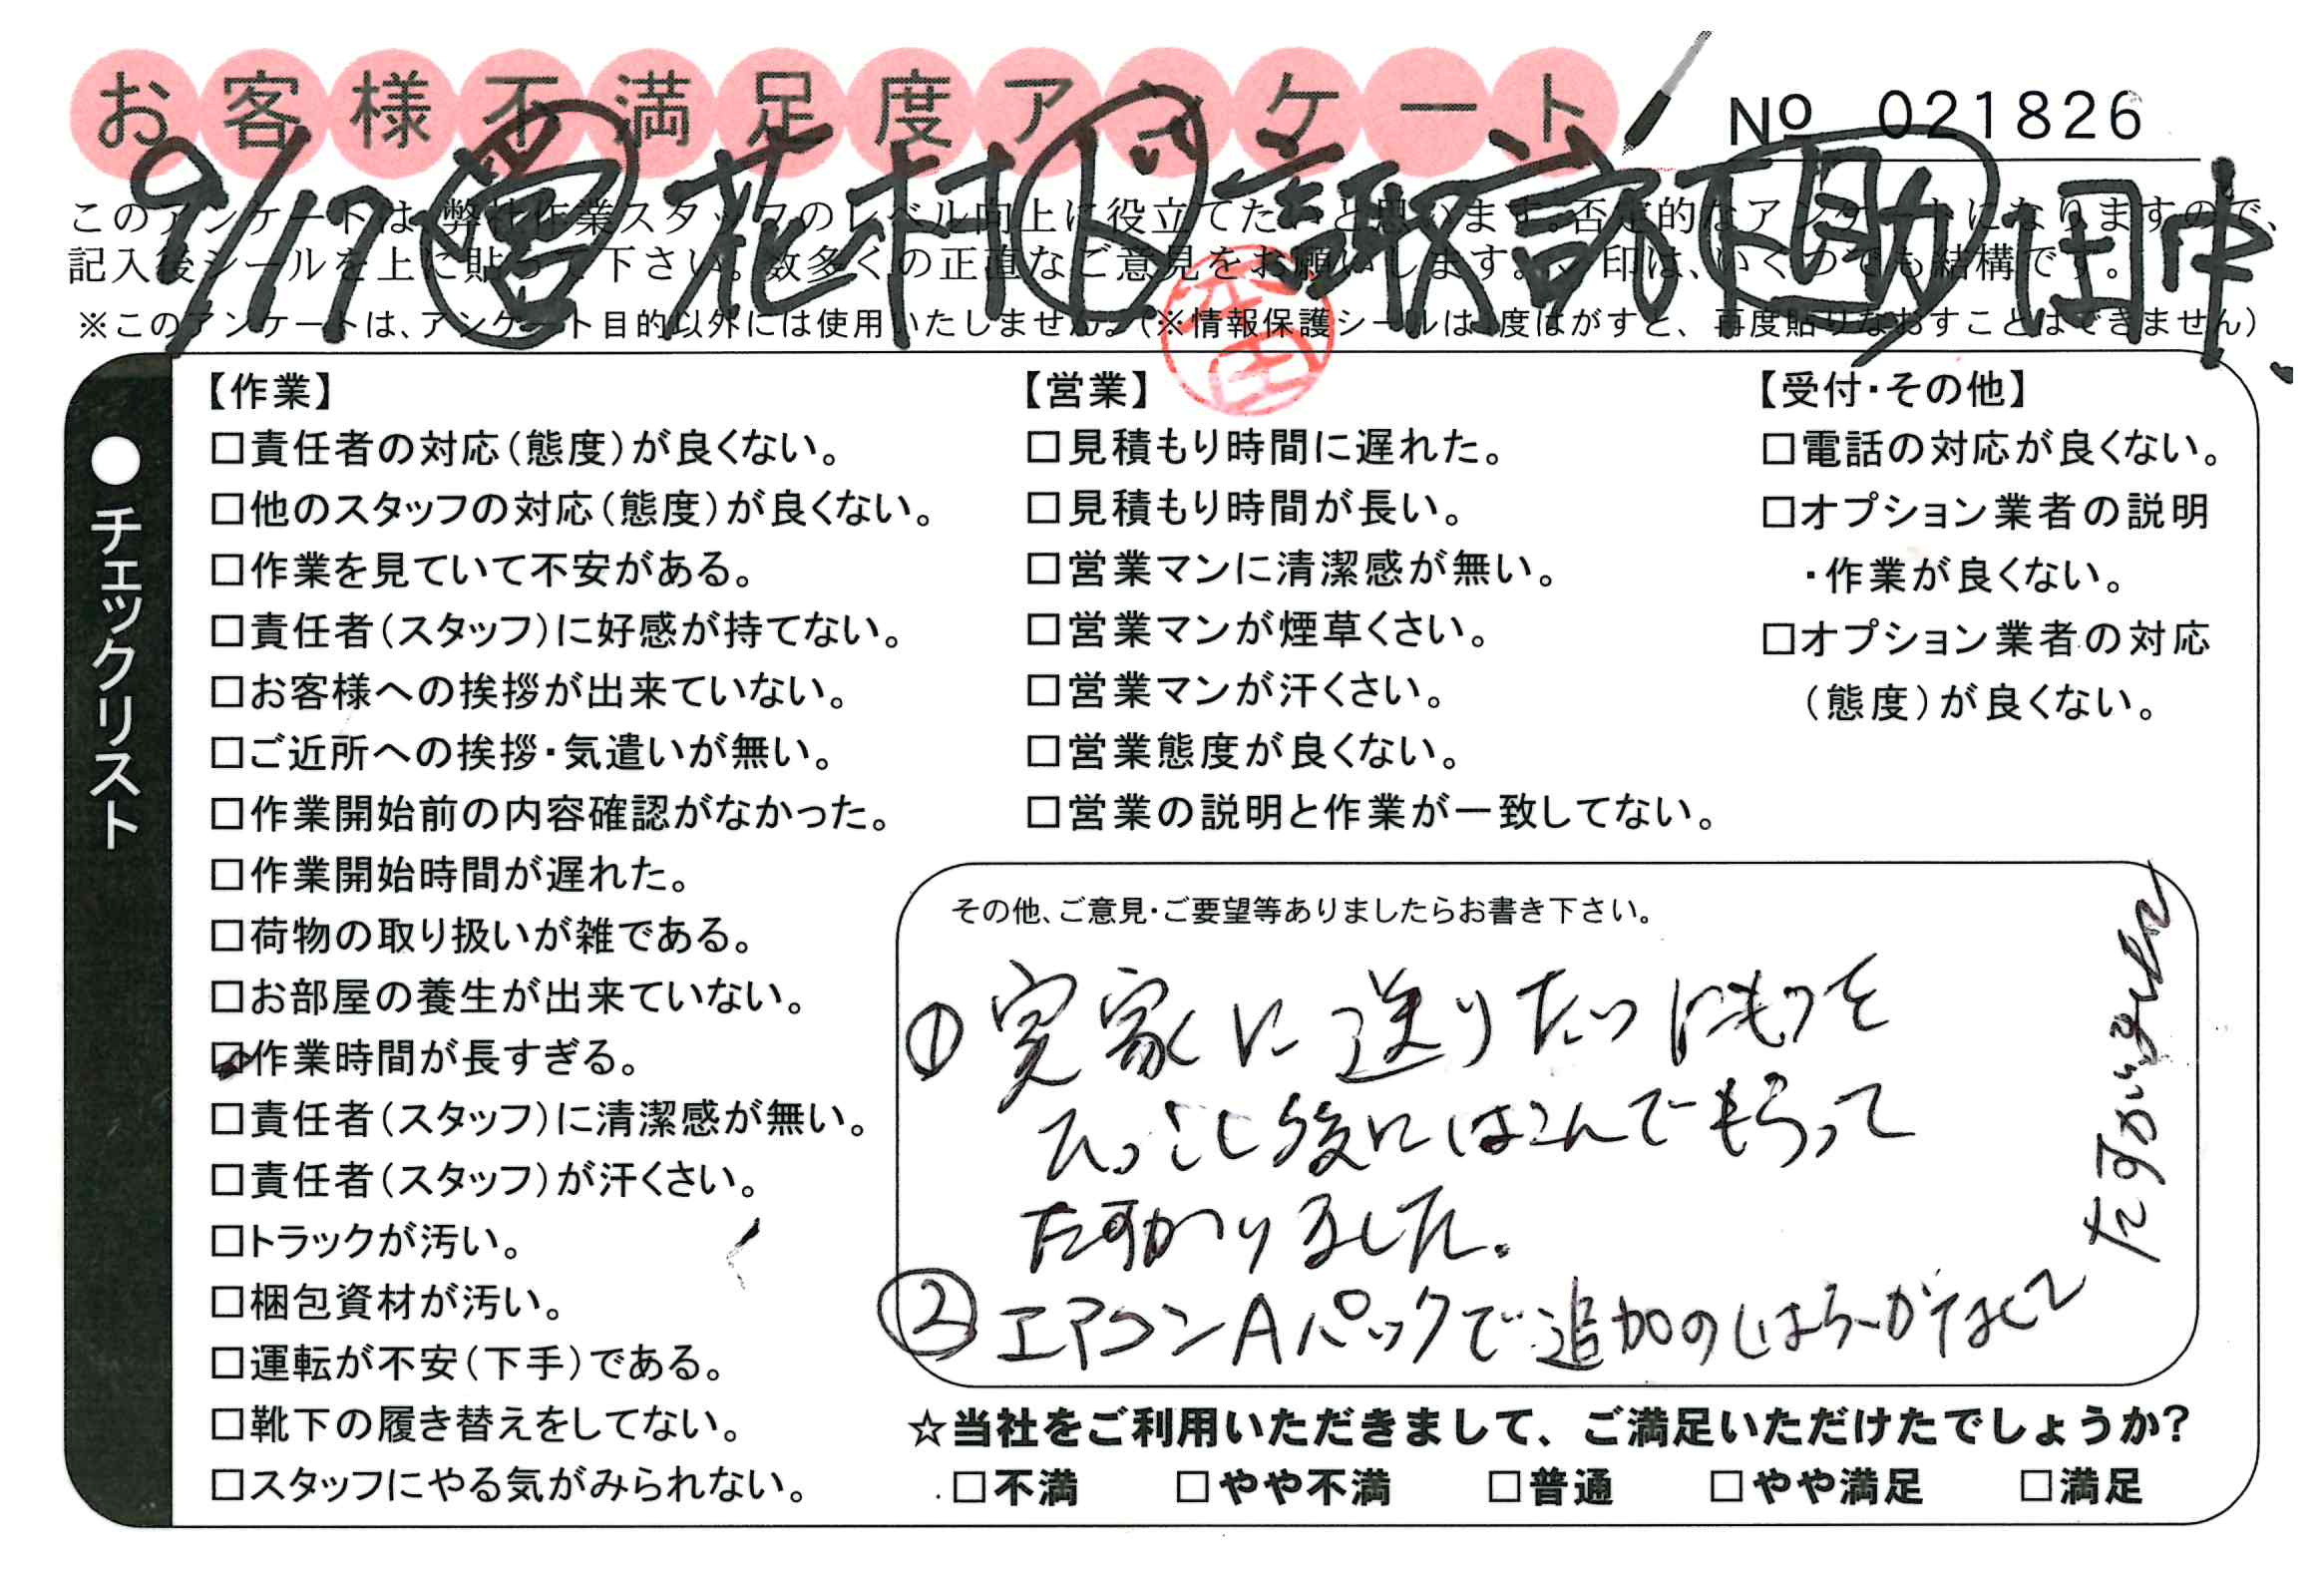 お客様不満足度アンケート
No 021826
9/17 営 花村 ト 諏訪下 助 田中
このアンケートは、弊社作業スタッフのレベル向上に役立てたいと思います。否定的なアンケートになりますので、
記入後シールを上に貼って下さい。数多くの正直なご意見をお願いします。✓印は、いくつでも結構です。
※このアンケートは、アンケート目的以外には使用いたしません。(※情報保護シールは1度はがすと、再度貼りなおすことはできません)
●チェックリスト
【作業】
□責任者の対応(態度)が良くない。
□他のスタッフの対応(態度)が良くない。
□作業を見ていて不安がある。
□責任者(スタッフ)に好感が持てない。
□お客様への挨拶が出来ていない。
□ご近所への挨拶・気遣いが無い。
□作業開始前の内容確認がなかった。
□作業開始時間が遅れた。
□荷物の取り扱いが雑である。
□お部屋の養生が出来ていない。
☑作業時間が長すぎる。
□責任者(スタッフ)に清潔感が無い。
□責任者(スタッフ)が汗くさい。
□トラックが汚い。
□梱包資材が汚い。
□運転が不安(下手)である。
□靴下の履き替えをしてない。
□スタッフにやる気がみられない。
【営業】
□見積もり時間に遅れた。
□見積もり時間が長い。
□営業マンに清潔感が無い。
□営業マンが煙草くさい。
□営業マンが汗くさい。
□営業態度が良くない。
□営業の説明と作業が一致してない。
【受付・その他】
□電話の対応が良くない。
□オプション業者の説明
・作業が良くない。
□オプション業者の対応
(態度)が良くない。
その他、ご意見・ご要望等ありましたらお書き下さい。
①実家に送りたいにもつを
ひっこし後にはこんでもらって
たすかりました。
②エアコンAパックで追加のしはらいがなくて
たすかりました
☆当社をご利用いただきまして、ご満足いただけたでしょうか?
□不満 □やや不満 □普通 □やや満足 □満足